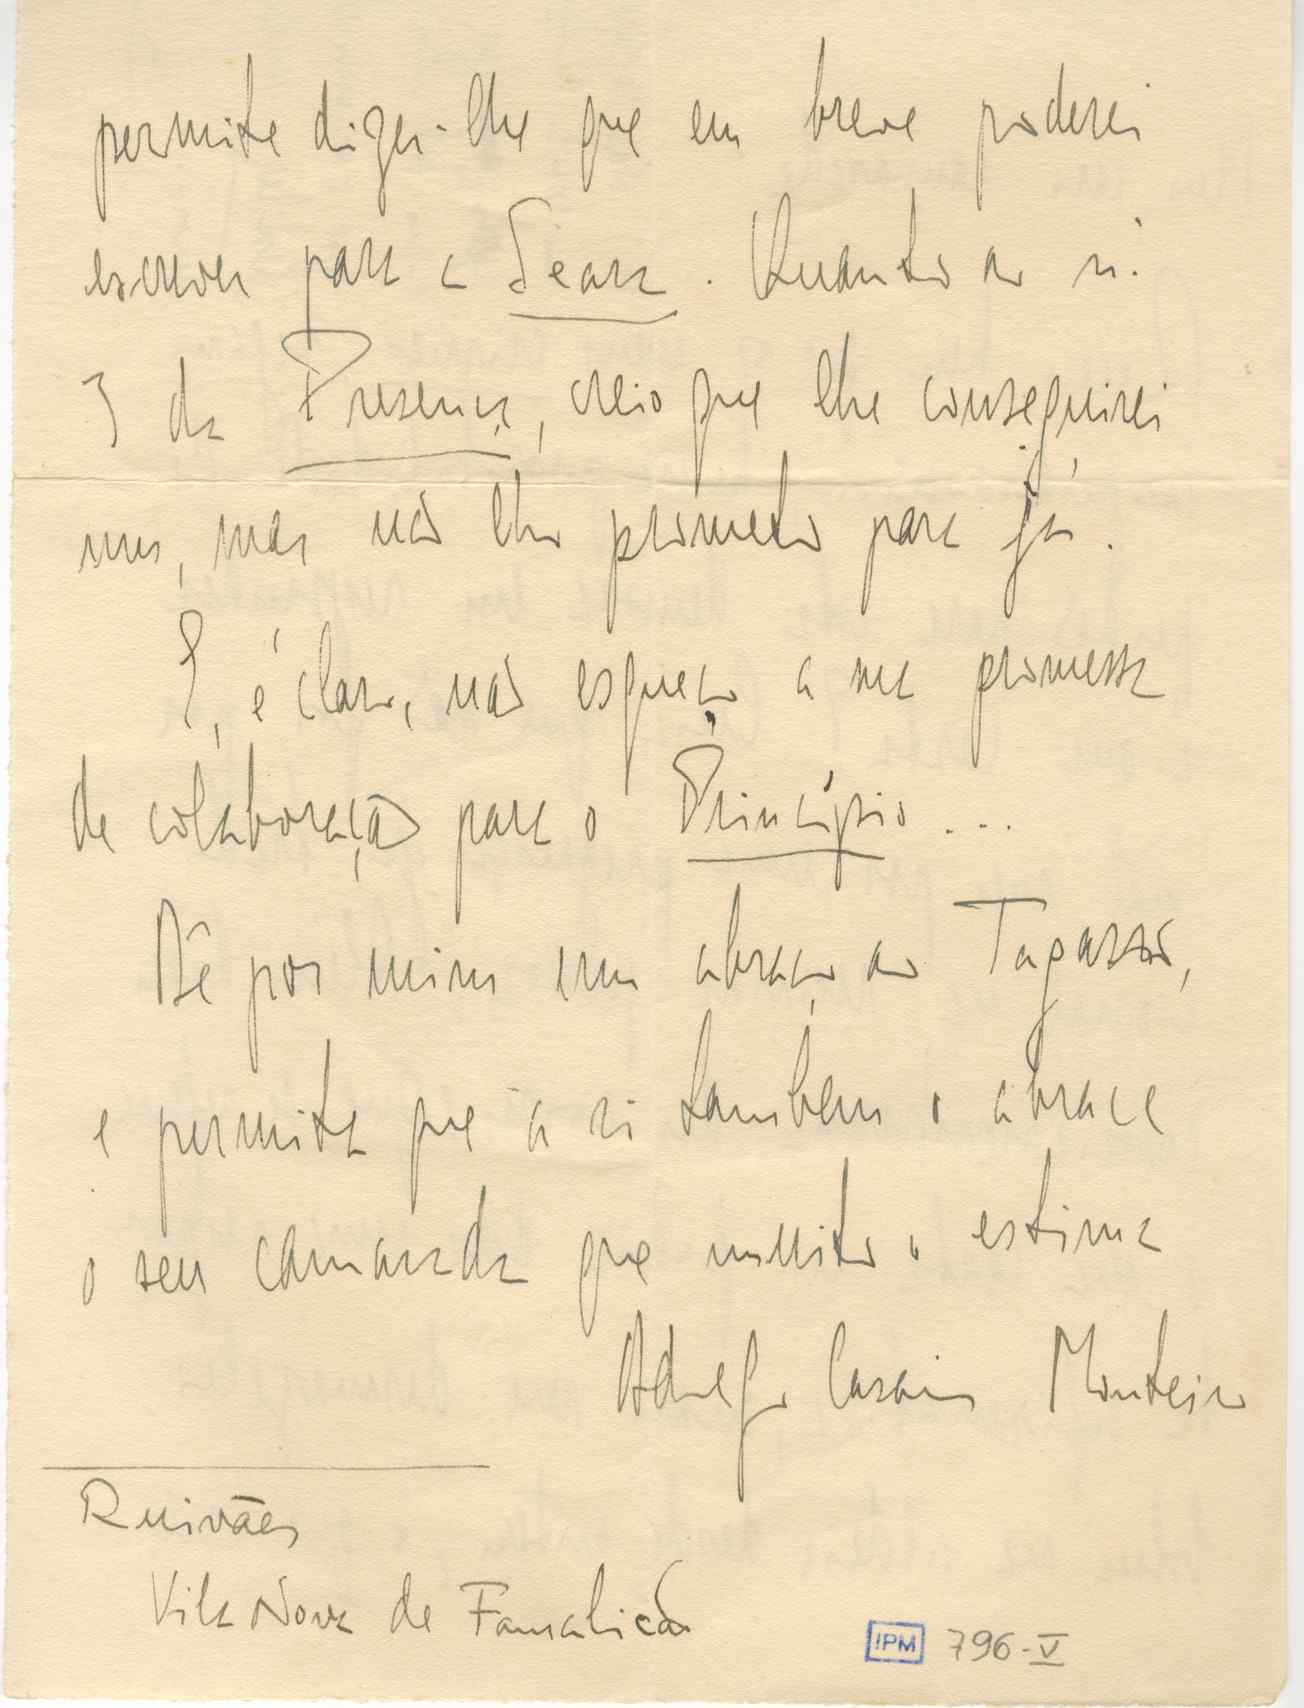 permite dizer-lhe que em breve poderei
escrever para a Seara. Quanto ao n.º
3 da Presença, creio que lhe conseguirei
um, mas não lho prometo para já.
E, é claro, não esqueço a sua promessa
de colaboração para o Princípio...
Dê por mim um abraço ao Tagarro,
e permita que a si tambem o abrace
o seu camarada que muito o estima
Adolfo Casais Monteiro
Ruivães
Vila Nova de Famalicão
IPM 796-V